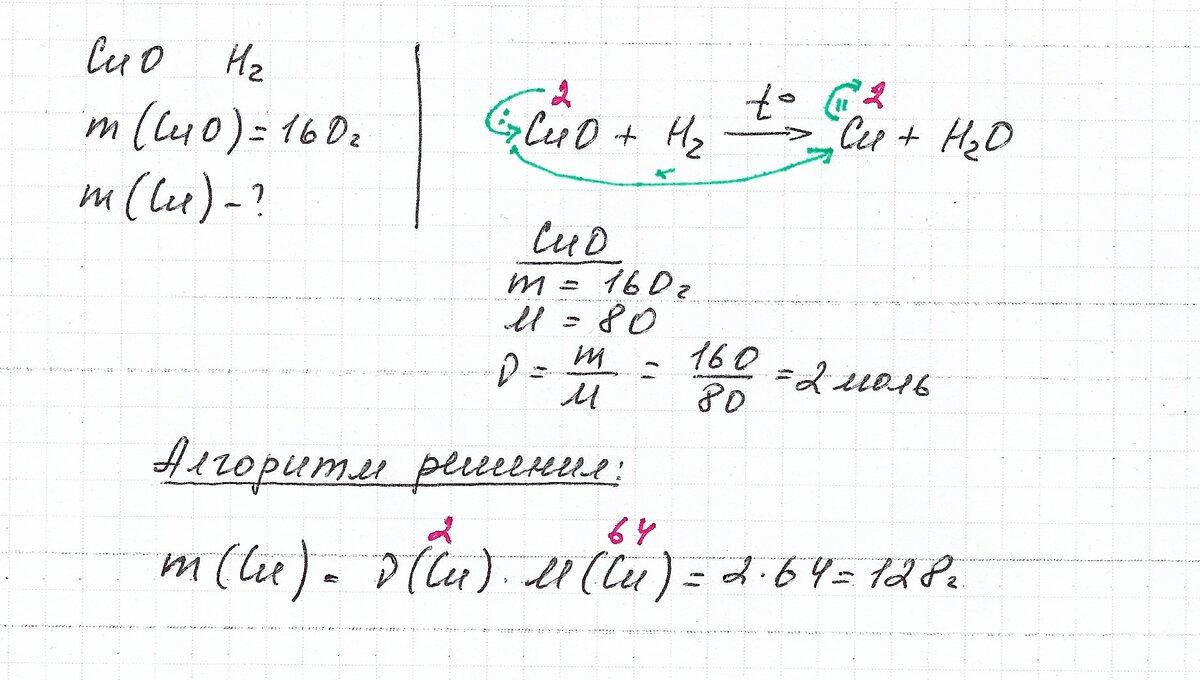 CuO H₂
m (CuO) = 160г
m (Cu) - ?
2 2
CuO + H₂ t° → Cu + H₂O
CuO
m = 160г
M = 80
ν = m/M = 160/80 = 2 моль
Алгоритм решения:
2 64
m (Cu) = ν (Cu) · M (Cu) = 2 · 64 = 128г